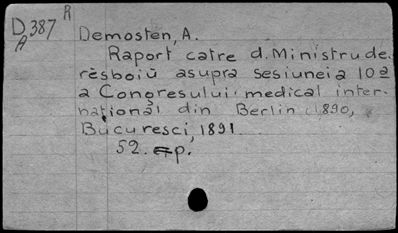 D 387 R
A
Demosten, A.
Raport catre d. Ministru de
rèsboiŭ asupra sesiuneia 10ª
a Congresului medical inter-
naţional din Berlin 1890,
Bucuresci, 1891
52. p.